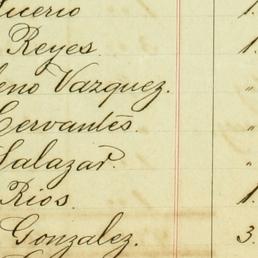 ucerio 1.
Reyes. 1.
eno Vazquez. "
Cervantes. "
Salazar. "
Rios. 1.
Gonzalez. 3.